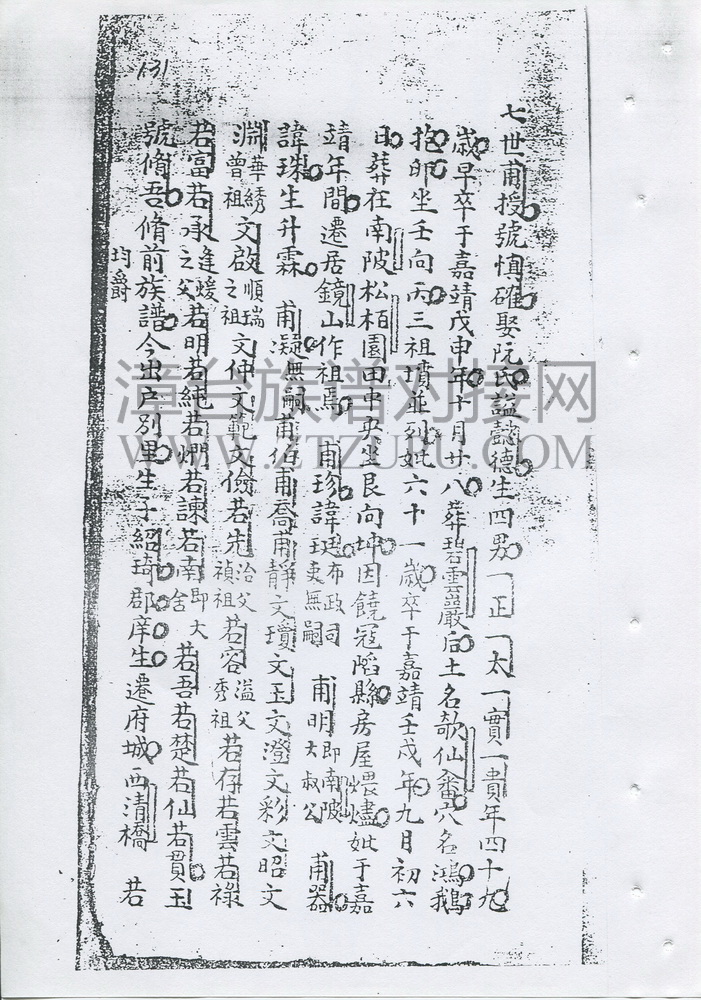 131
七世甫授號慎確娶阮氏謚懿德生四男一正一太一實一貴年四十九
歲早卒于嘉靖戊申年十月廿八葬碧雲巖后土名欹仙穴名鴻鵝
抱卵坐壬向丙三祖墳並列妣六十一歲卒于嘉靖壬戌年九月初六
日葬在南陂松栢園田中央坐艮向坤因饒寇陷縣房屋煨燼妣于嘉
靖年間遷居鏡山作祖焉 甫珍諱 布政司吏無嗣 甫明即南陂大叔公 甫器
諱珠生升霖 甫凝無嗣甫伯甫喬甫靜文瓊文玉文澄文彩文昭文
淵華綉曾祖文啟順瑞之祖文仲文範文俊若先治父禎祖若容溢父秀祖若存若雲若祿
若富若承逢煖之父若明若純若炯若諫若南即大舍 若吾若楚若仙若貫玉
號脩吾脩前族譜今出戶別里生子紹琦郡庠生遷府城西清橋 若
均爵
漳台族谱对接网
WWW.ZTZUPU.COM